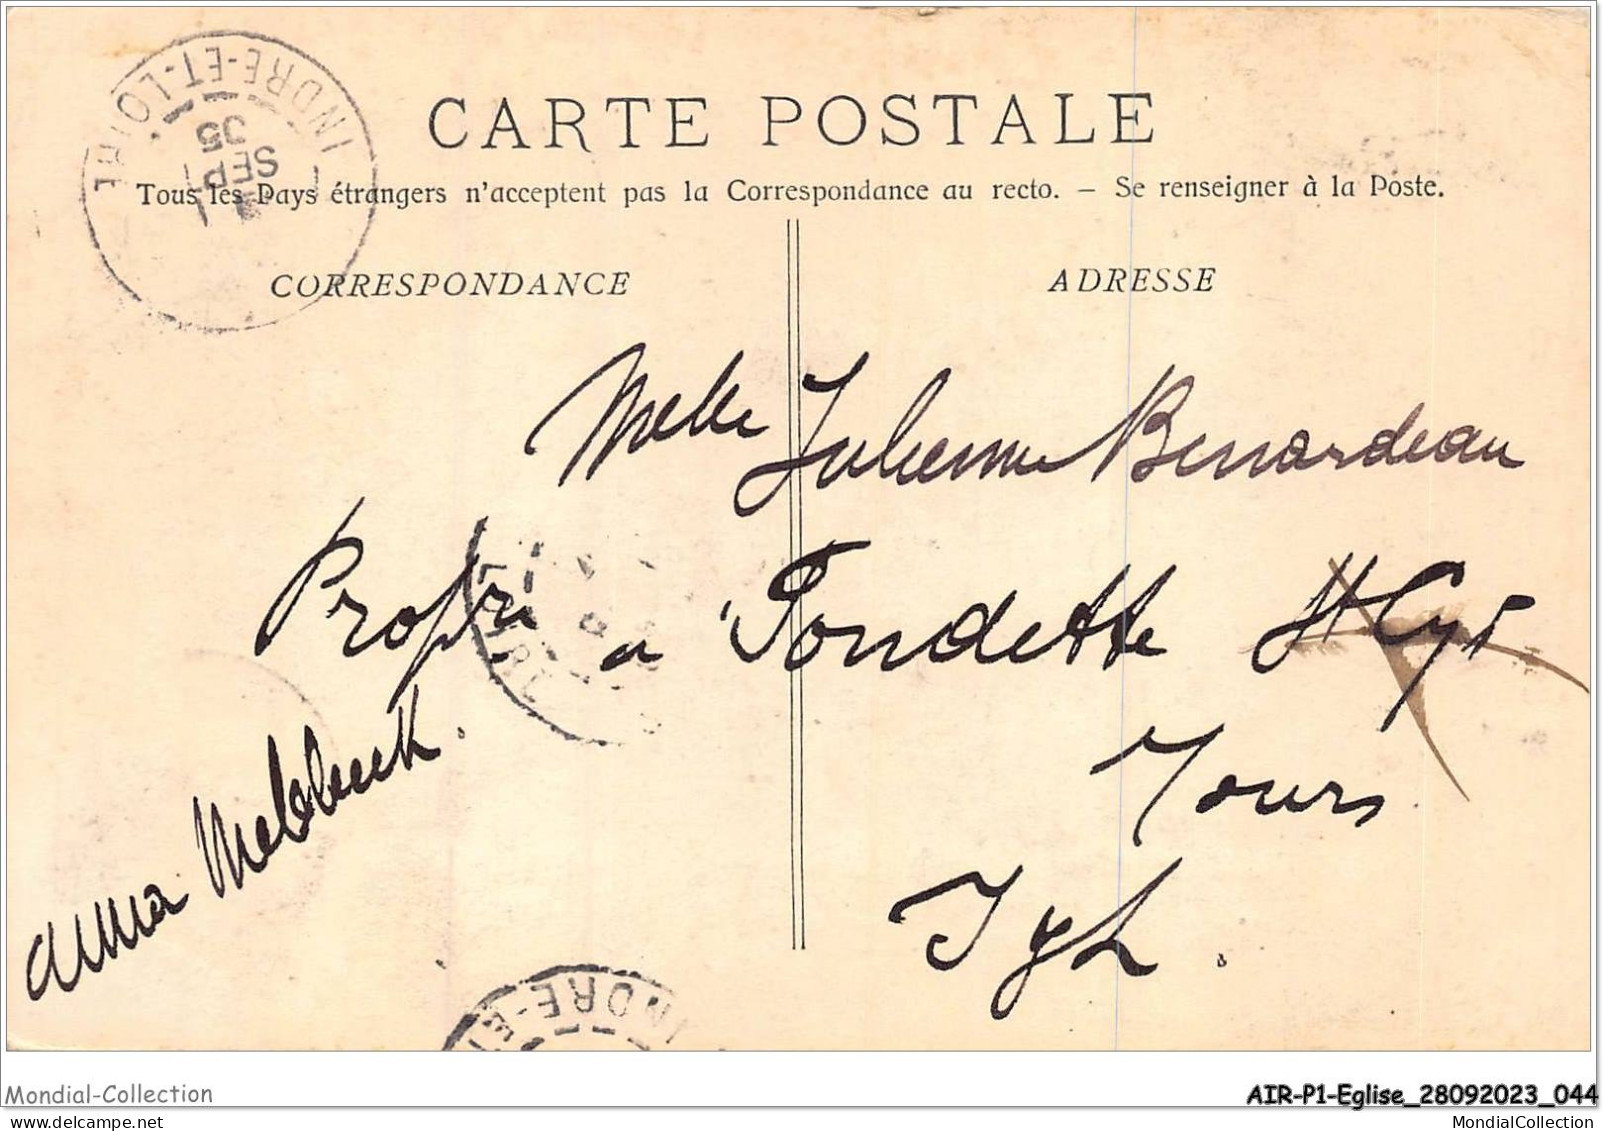 INDRE-ET-LOIRE
SEP
05
CARTE POSTALE
Tous les Pays étrangers n'acceptent pas la Correspondance au recto. – Se renseigner à la Poste.
CORRESPONDANCE
ADRESSE
Melle Julienne Benardeau
Propri a Fondette St Cyr
Tours
I & L.
anna
INDRE-ET
Mondial-Collection
AIR-P1-Eglise_28092023_044
www.delcampe.net
MondialCollection